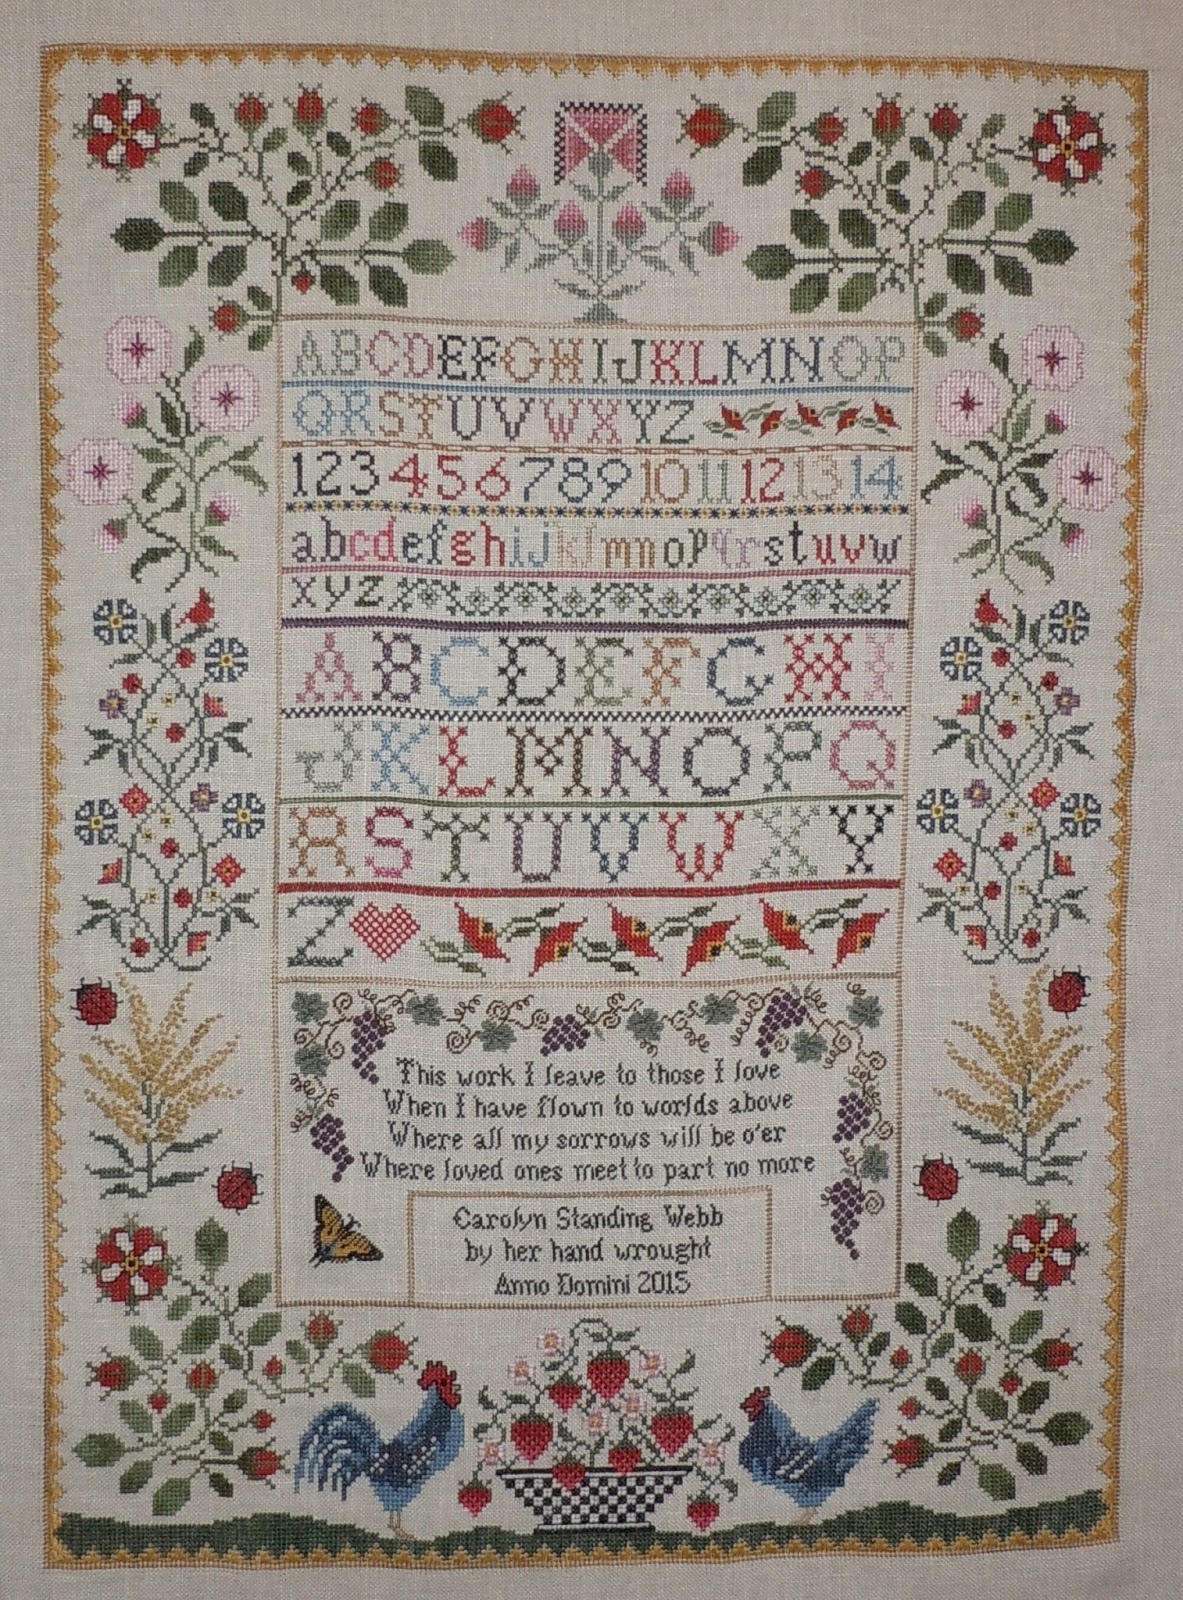 ABCDEFGHIJKLMNOP
QRSTUVWXYZ
1234567891011121314
abcdefghijklmnopqrstuvw
xyz
ABCDEFGHI
JKLMNOPQ
RSTUVWXY
Z
This work I leave to those I love
When I have flown to worlds above
Where all my sorrows will be o'er
Where loved ones meet to part no more
Carolyn Standing Webb
by her hand wrought
Anno Domini 2015